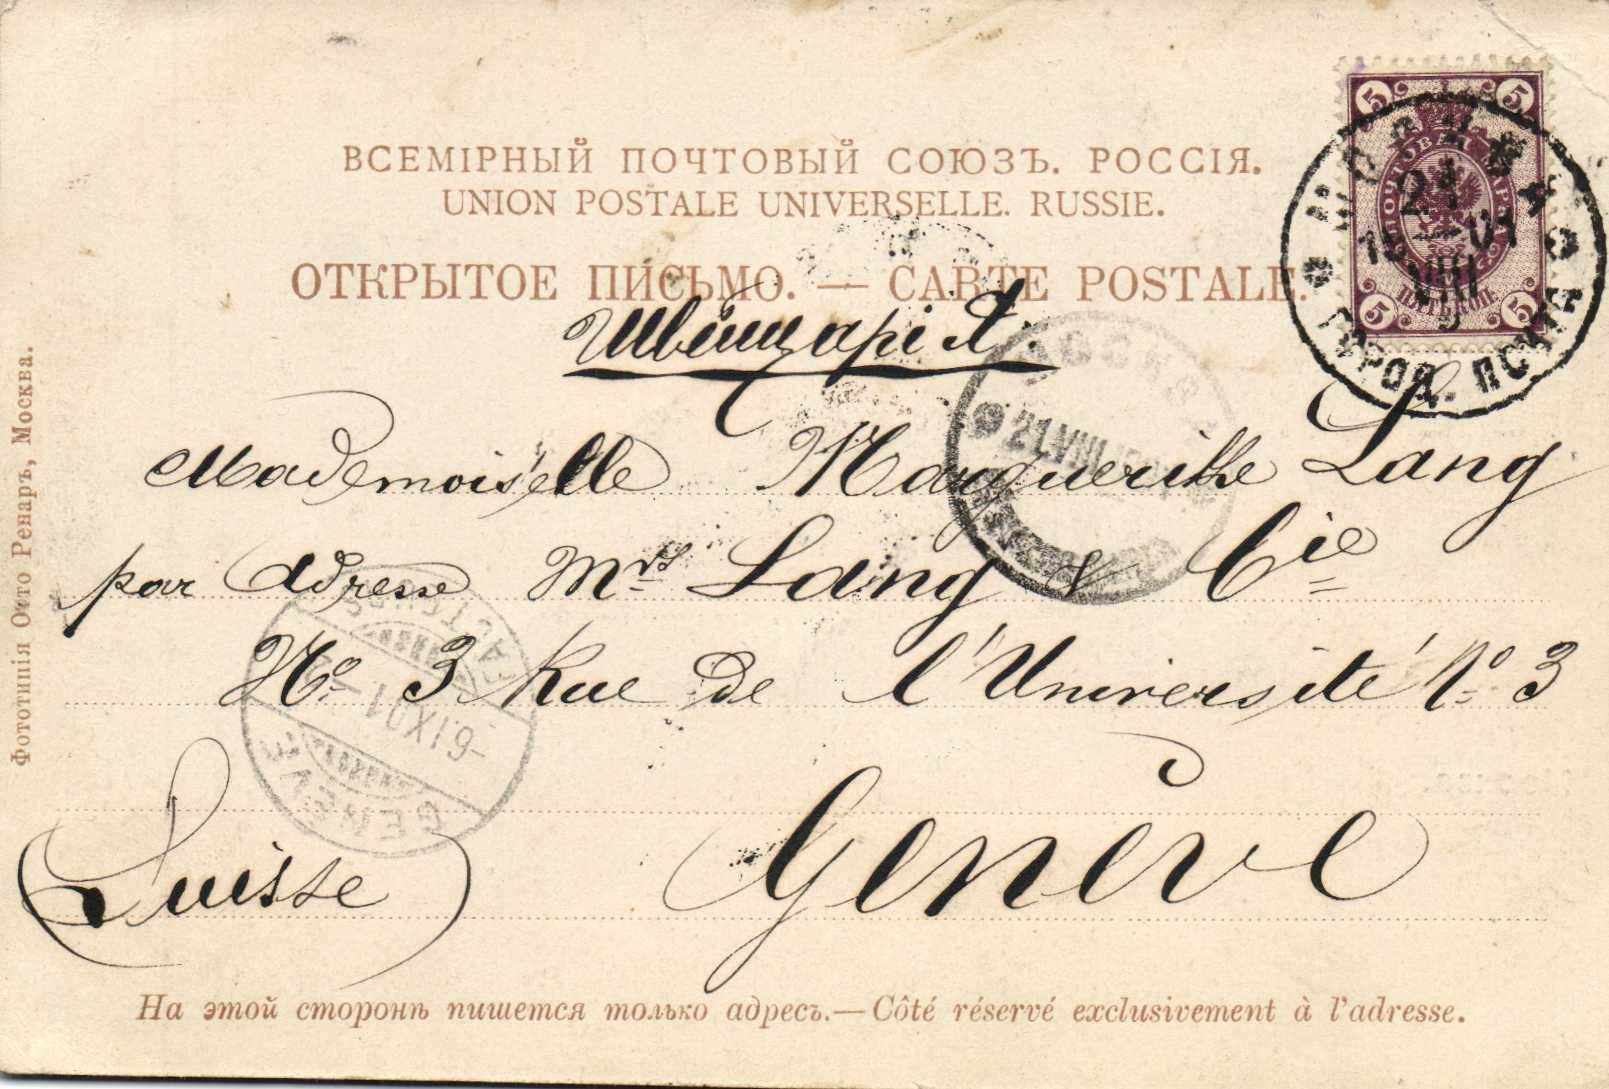 ВСЕМІРНЫЙ ПОЧТОВЫЙ СОЮЗЪ. РОССІЯ.
UNION POSTALE UNIVERSELLE. RUSSIE.
ОТКРЫТОЕ ПИСЬМО. — CARTE POSTALE.
Швейцарія.
Mademoiselle Marguerithe Lang
par Adresse Mrs Lang & Cie
No. 3 Rue de l'Université No. 3
Genève
(Suisse)
На этой сторонѣ пишется только адресъ. — Côté réservé exclusivement à l'adresse.
Фототипія Отто Ренаръ, Москва.
5 5
5 5
МОСКВА
21
VIII
ГОРОД. ПОЧТА
МОСКВА
21.VIII
GENÈVE
-6.IX.01
FACTEURS